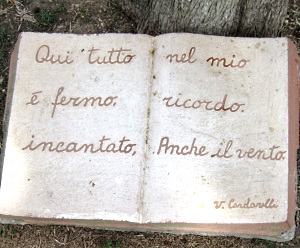 Qui tutto
é fermo,
incantato,
nel mio
ricordo.
Anche il vento.
V. Cardarelli